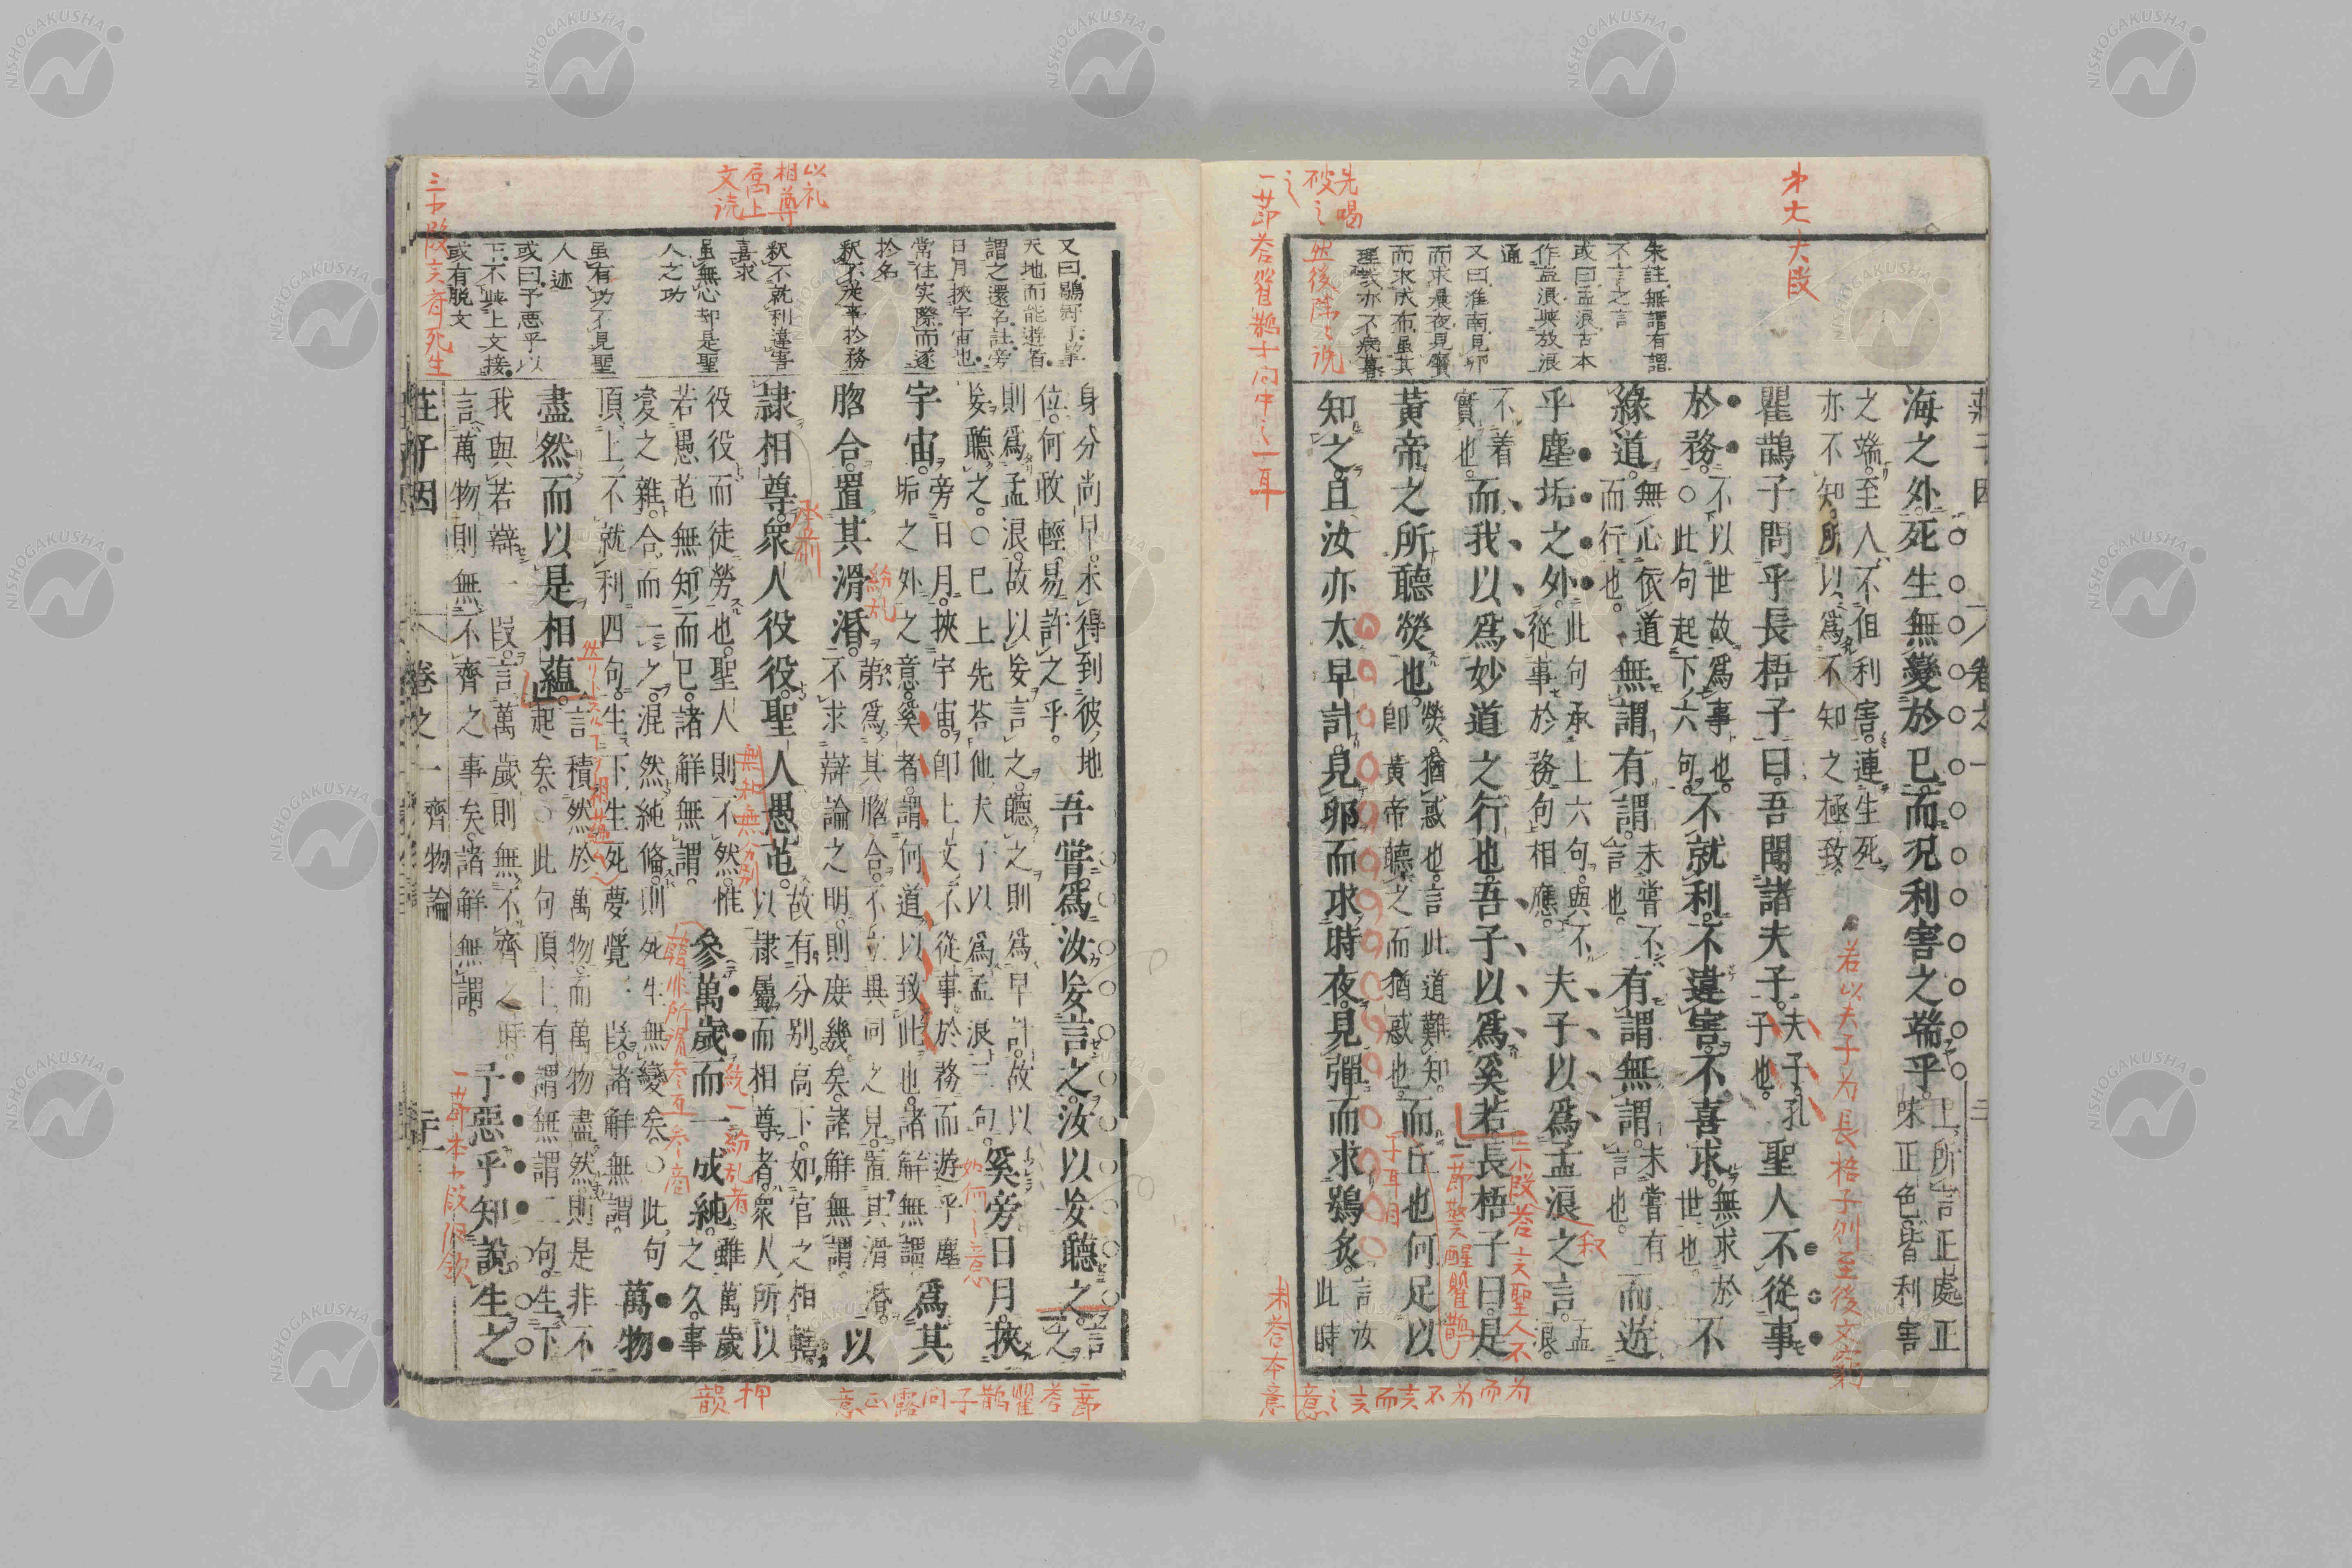 莊子因 卷之一
海之外死生無變於已而況利害之端乎
上所言正處正
味正色皆利害
之端至人不但利害連生死
亦不知所以為不知之極致
瞿鵲子問乎長梧子曰吾聞諸夫子
夫子孔
子也
聖人不從事
於務
不以世故為事也
○此句起下六句
不就利不違害不喜求
無求於
世也
不
緣道
無心依道
而行也
無謂有謂
未嘗不
言也
有謂無謂
未嘗有
言也
而遊
乎塵垢之外
此句承上六句與不
從事於務句相應
夫子以為孟浪之言
孟
浪
不着
實也
而我以為妙道之行也吾子以為奚若長梧子曰是
黃帝之所聽熒也
熒猶惑也言此道難知
卽黃帝聽之而猶惑也
而丘也何足以
知之且汝亦太早計見卵而求時夜見彈而求鴞炙
言汝
此時
朱註無謂有謂
不言之言
或曰孟浪古本
作孟浪與放浪
通
又曰淮南見卵
而求晨夜見
而求成布雖其
理哉亦不病暮
才大夫段
若以夫子为長梧子則至後文窮
先喝
破之
然後陳之說
一節答瞿鵲才问中之一耳
三小段答上文聖人不
二節驚醒瞿鵲
为而为不言而言之意
未答本意
身分尚早未得到彼地
位何敢輕易許之乎
吾嘗為汝妄言之汝以妄聽之
言之
則為孟浪故以妄言之聽之則為早計故以
妄聽之○已上先荅他夫子以為孟浪二句
奚旁日月挾
宇宙
旁日月挾宇宙卽上文不從事於務而遊乎塵
垢之外之意奚者謂何道以致此也諸解無謂
為其
脗合置其滑涽
第為其脗合不立異同之見置其滑涽
不求辯論之明則庶幾矣諸解無謂
以
隸相尊衆人役役聖人愚芚
故有分別高下如官之相轄
以隸屬而相尊者衆人所以
役役而徒勞也聖人則不然惟
若愚芚無知而已諸解無謂
參萬歲而一成純
雖萬歲
之久事
變之雜合而一之混然純偹則死生無變矣○此句
頂上不就利四句生下生死夢覺一段諸解無謂
萬物
盡然而以是相蘊
言積然於萬物而萬物盡然則是非不
起矣○此句頂上有謂無謂二句生下
我與若辯一段言萬歲則無不齊之時
言萬物則無不齊之事矣諸解無謂
予惡乎知說生之
莊子因 卷之一 齊物論
又曰鶡冠子挈
天地而能遊者
謂之還名註旁
日月挾宇宙也
常往实際而遂
扵名
釈不從事扵務
釈不就利違害
喜求
虽無心却是聖
人之功
虽有功不見聖
人迹
或曰予惡乎以
下不與上文接
或有脱文
以礼
相尊
属上
文読
三小段言者死生
承断
紛乱
無知無分別
統一紛乱者
如何之意
二節答瞿鵲子问露正意
押
韻